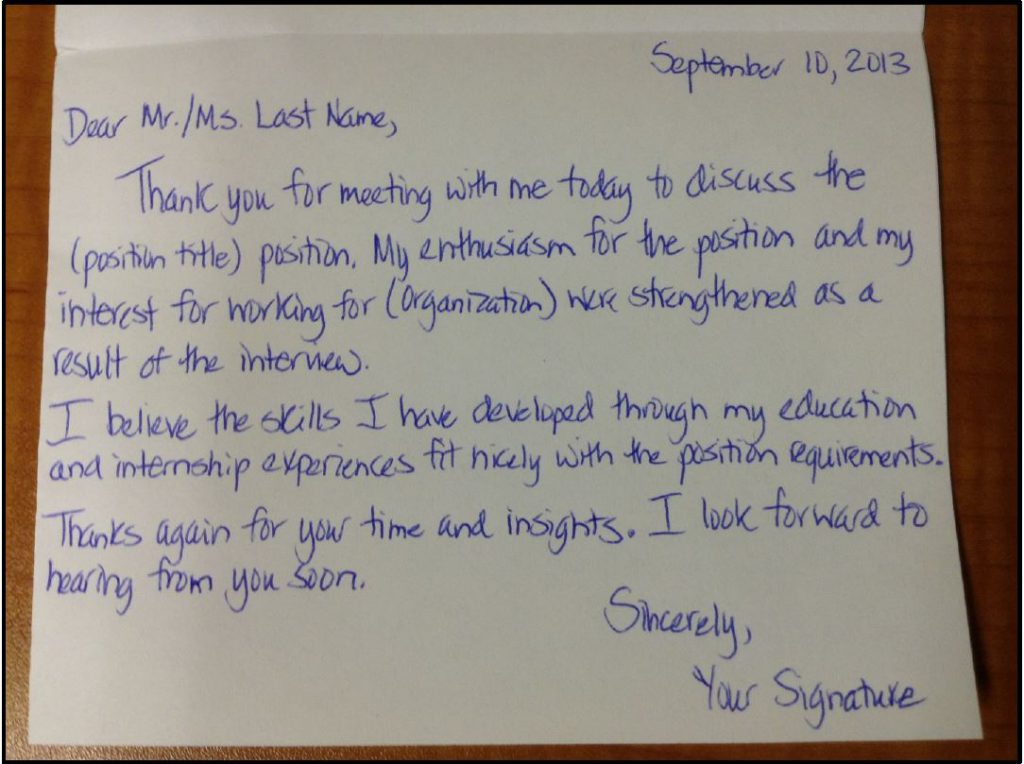 September 10, 2013
Dear Mr./Ms. Last Name,
Thank you for meeting with me today to discuss the
(position title) position. My enthusiasm for the position and my
interest for working for (Organization) were strengthened as a
result of the interview.
I believe the skills I have developed through my education
and internship experiences fit nicely with the position requirements.
Thanks again for your time and insights. I look forward to
hearing from you soon.
Sincerely,
Your Signature